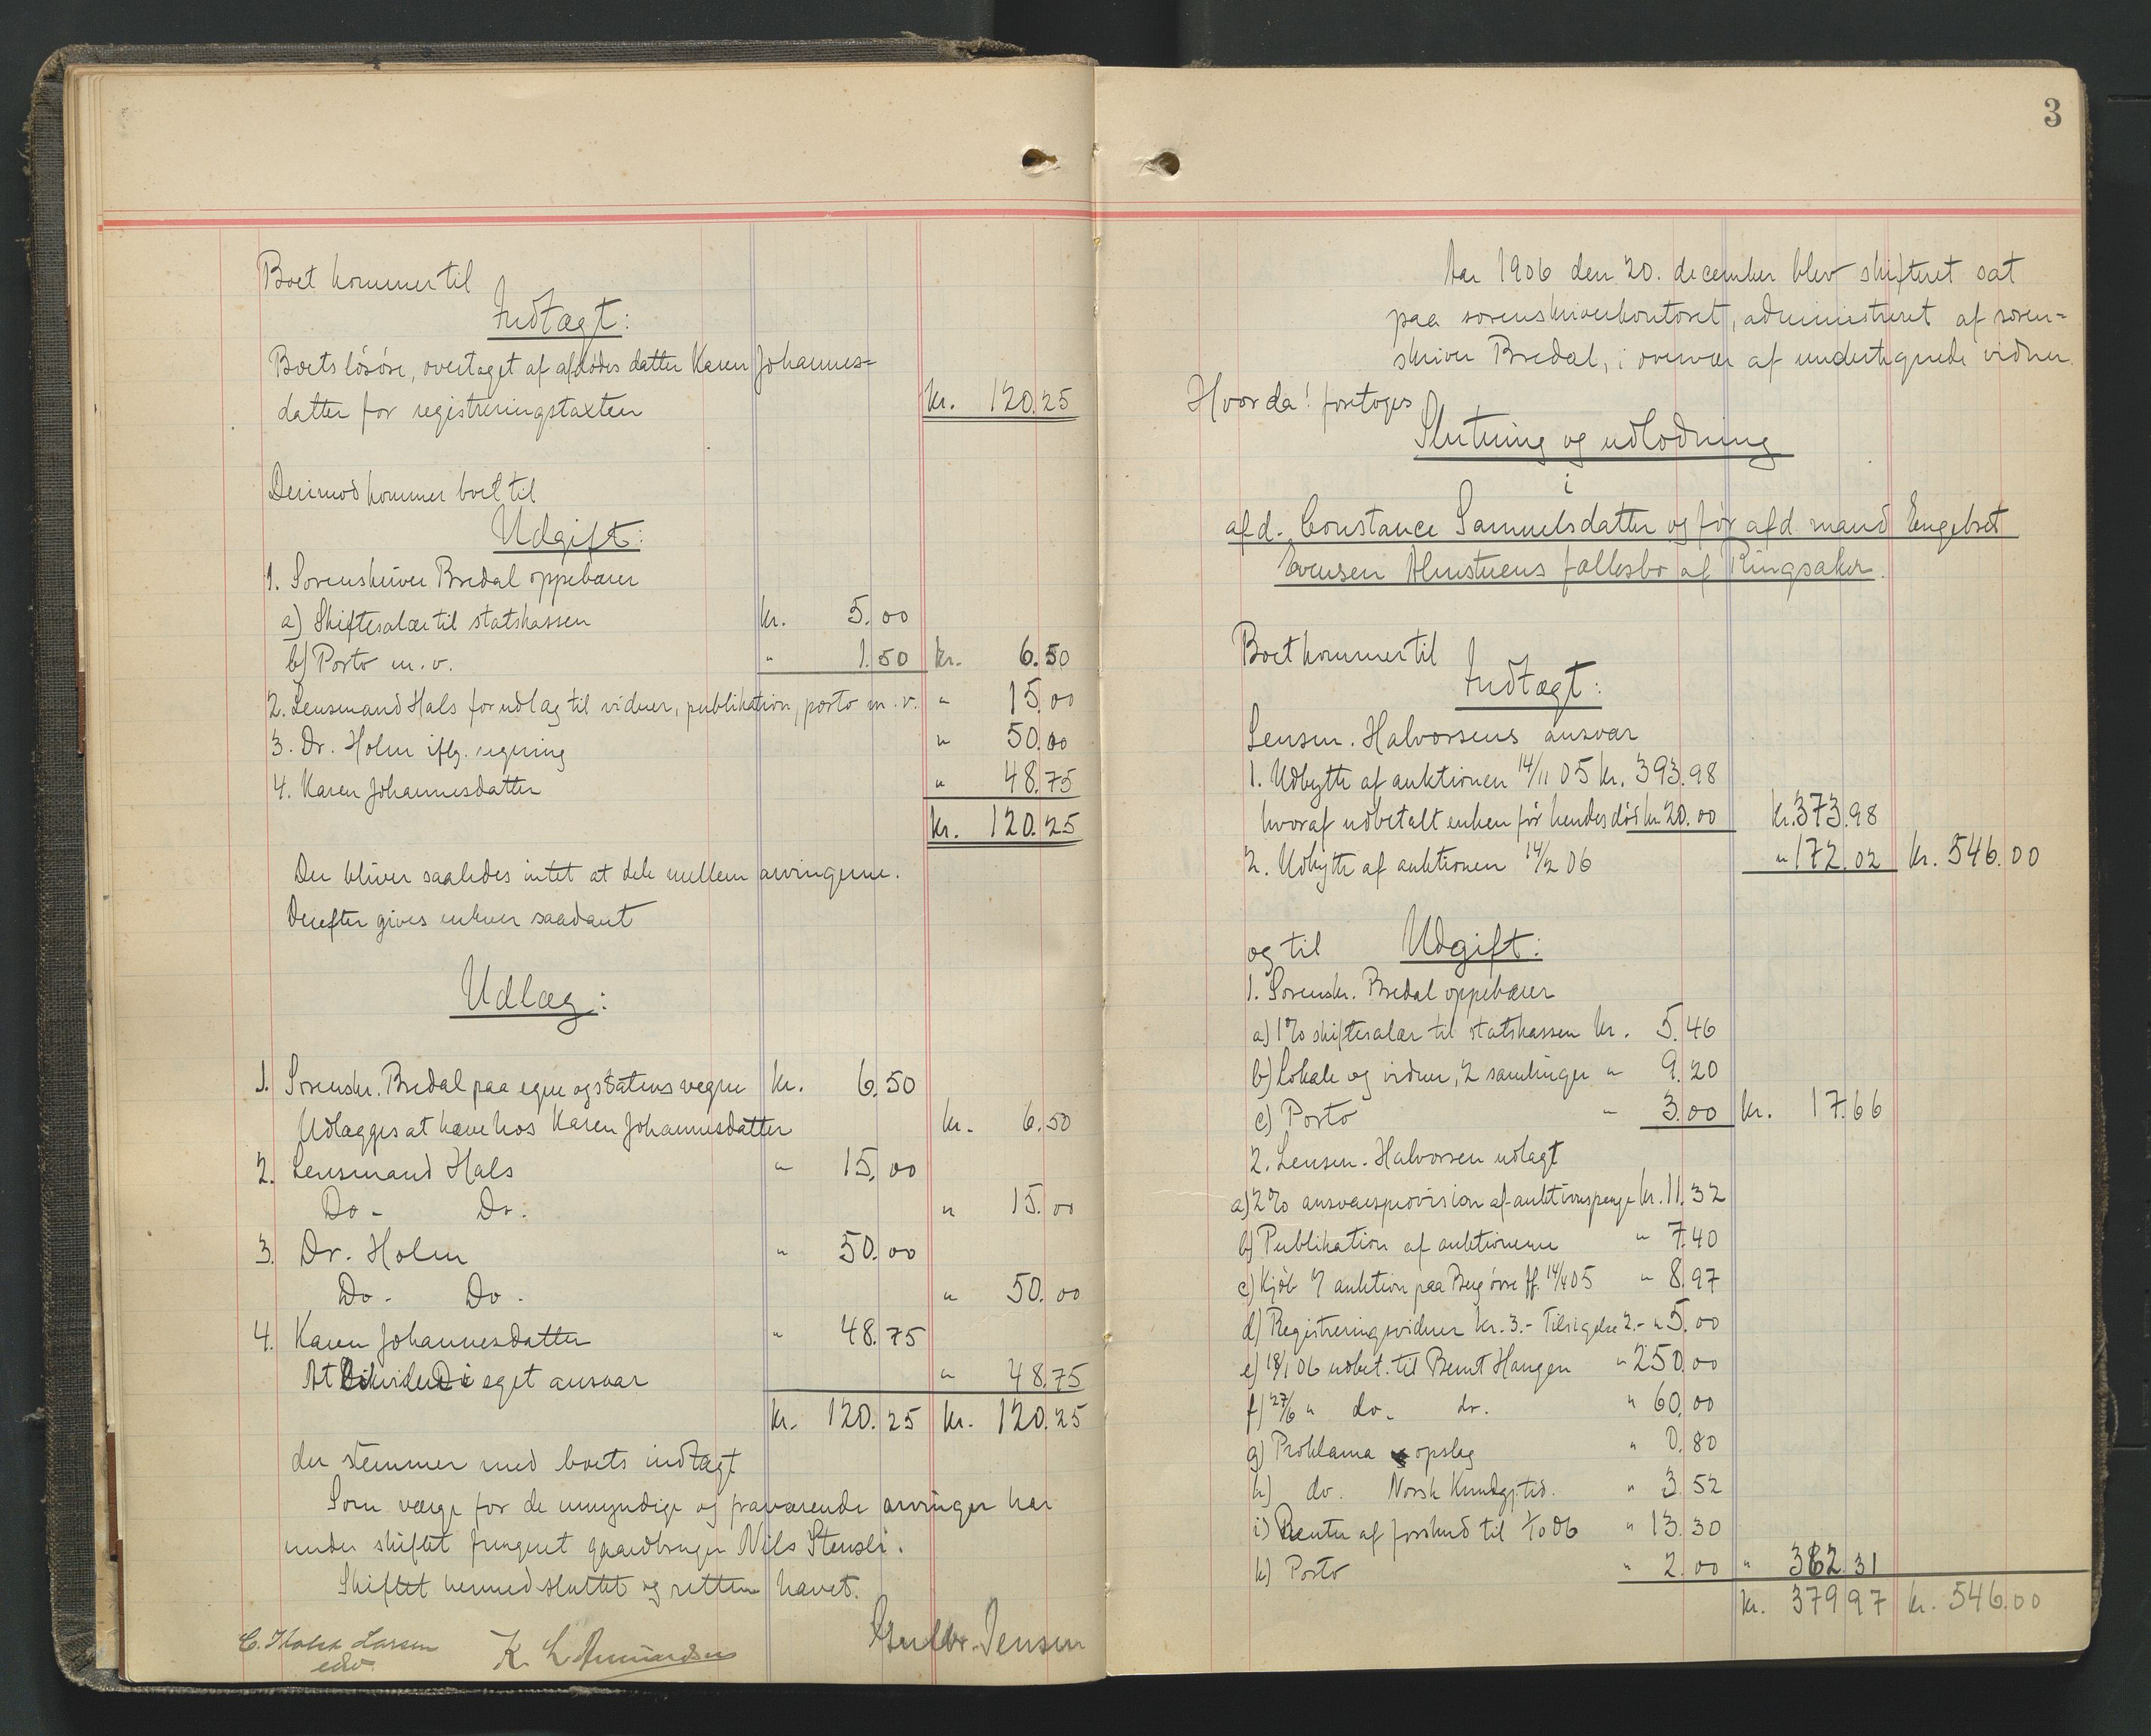 Boet kommer til
Indtægt:
Boets løsøre, overtaget af afdødes datter Karen Johannes=
datter for registreringstaxten kr. 120.25
Derimod kommer boet til
Udgift:
1. Sorenskriver Bredal oppebærer
a) Skiftesalær til statskassen kr. 5.00
b) Porto m.v. " 1.50 kr. 6.50
2. Lensmand Hals for udlæg til vidner, publikation, porto m.v. " 15.00
3. Dr. Holm iflg. regning " 50.00
4. Karen Johannesdatter " 48.75
kr. 120.25
Der bliver saaledes intet at dele mellem arvingerne.
Derefter gives enhver saadant
Udlæg:
1. Sorenskr. Bredal paa egne og statens vegne kr. 6.50
Udlægges at hæve hos Karen Johannesdatter kr. 6.50
2. Lensmand Hals " 15.00
Do - Do. " 15.00
3. Dr. Holm " 50.00
Do - Do. " 50.00
4. Karen Johannesdatter " 48.75
At eget ansvar " 48.75
kr. 120.25 kr. 120.25
der stemmer med boets indtægt
Som værge for de umyndige og fraværende arvinger har
under skiftet fungeret gaardbruger Nils Stensli.
Skiftet hermed sluttet og retten hævet.
C. Larsen K. L. Amundsen Gulbr. Jensen
edv.
3
Aar 1906 den 20. december blev skifteret sat
paa sorenskriverkontoret, administreret af soren=
skriver Bredal, i overvær af undertegnede vidner.
Hvorda! foretoges
Slutning og udlodning
i
afd. Constance Samuelsdatter og før afd. mand Engebret
Evensen Almstuens fællesbo af Ringsaker.
Boet kommer til
Indtægt:
Lensm. Halvorsens ansvar
1. Udbytte af auktionen 14/11 05 kr. 393.98
hvoraf udbetalt enken før hendes død kr. 20.00 kr. 373.98
2. Udbytte af auktionen 14/2 06 " 172.02 kr. 546.00
og til Udgift:
1. Sorenskr. Bredal oppebærer
a) 1% skiftesalær til statskassen kr. 5.46
b) Lokale og vidner, 2 samlinger " 9.20
c) Porto " 3.00 kr. 17.66
2. Lensm. Halvorsen udlagt
a) 2% ansvarsprovision af auktionspenge kr. 11.32
b) Publikation af auktionerne " 7.40
c) Kjøb auktion paa Berg øvre 05 " 8.97
d) Registreringsvidner kr. 3.- Tilsigelse 2.- " 5.00
e) 18/1 06 udbet. til Bernt Haugen " 250.00
f) 27/6 " do. do. " 60.00
g) Proklama opslag " 0.80
h) do. Norsk Kundgj.tid. " 3.52
i) Renter af forskud til 06 " 13.30
k) Porto " 2.00 " 362.31
kr. 379.97 kr. 546.00